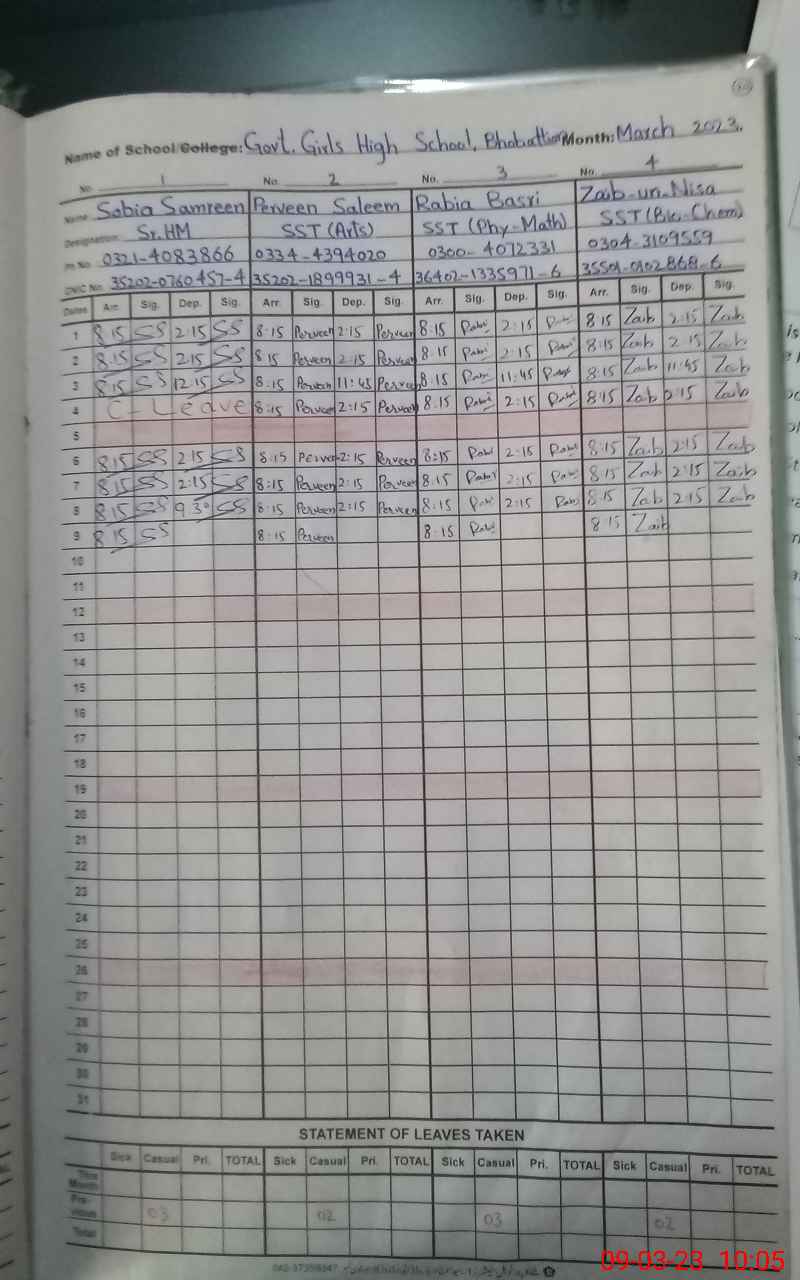 Name of School/College: Govt. Girls High School, Bhobattian Month: March 2023.
No. 1 No. 2 No. 3 No. 4
Name Sobia Samreen Perveen Saleem Rabia Basri Zaib-un-Nisa
Designation: Sr. HM SST (Arts) SST (Phy-Math) SST (Bio-Chem)
Ph No. 0321-4083866 0334-4394020 0300-4072331 0304-3109559
CNIC No. 35202-0760457-4 35202-1899931-4 36402-1335971-6 35501-0102868-6
Dates Arr. Sig. Dep. Sig. Arr. Sig. Dep. Sig. Arr. Sig. Dep. Sig. Arr. Sig. Dep. Sig.
1 8:15 SS 2:15 SS 8:15 Perveen 2:15 Perveen 8:15 Rabi 2:15 Rabi 8:15 Zaib 2:15 Zaib
2 8:15 SS 2:15 SS 8:15 Perveen 2:15 Perveen 8:15 Rabi 2:15 Rabi 8:15 Zaib 2:15 Zaib
3 8:15 SS 12:15 SS 8:15 Perveen 11:45 Perveen 8:15 Rabi 11:45 Rabi 8:15 Zaib 11:45 Zaib
4 C-Leave 8:15 Perveen 2:15 Perveen 8:15 Rabi 2:15 Rabi 8:15 Zaib 2:15 Zaib
5
6 8:15 SS 2:15 SS 8:15 Perveen 2:15 Perveen 8:15 Rabi 2:15 Rabi 8:15 Zaib 2:15 Zaib
7 8:15 SS 2:15 SS 8:15 Perveen 2:15 Perveen 8:15 Rabi 2:15 Rabi 8:15 Zaib 2:15 Zaib
8 8:15 SS 9:30 SS 8:15 Perveen 2:15 Perveen 8:15 Rabi 2:15 Rabi 8:15 Zaib 2:15 Zaib
9 8:15 SS 8:15 Perveen 8:15 Rabi 8:15 Zaib
10
11
12
13
14
15
16
17
18
19
20
21
22
23
24
25
26
27
28
29
30
31
STATEMENT OF LEAVES TAKEN
Sick Casual Pri. TOTAL Sick Casual Pri. TOTAL Sick Casual Pri. TOTAL Sick Casual Pri. TOTAL
This Month
Pre-vious 03 02 03 02
Total
09-03-23 10:05